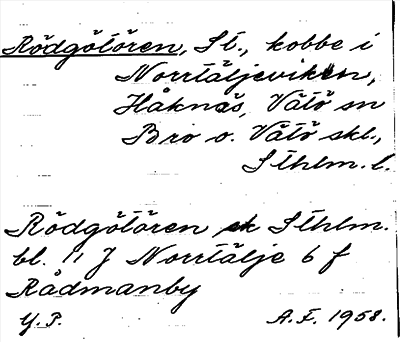 Rödgötören, St., kobbe i
Norrtäljeviken,
Håknäs, Vätö sn
Bro o. Vätö skl.,
Sthlm. l.
Rödgötören ek Sthlm.
bl. 11 J Norrtälje 6 f
Rådmanby
Y. P. A. F. 1958.